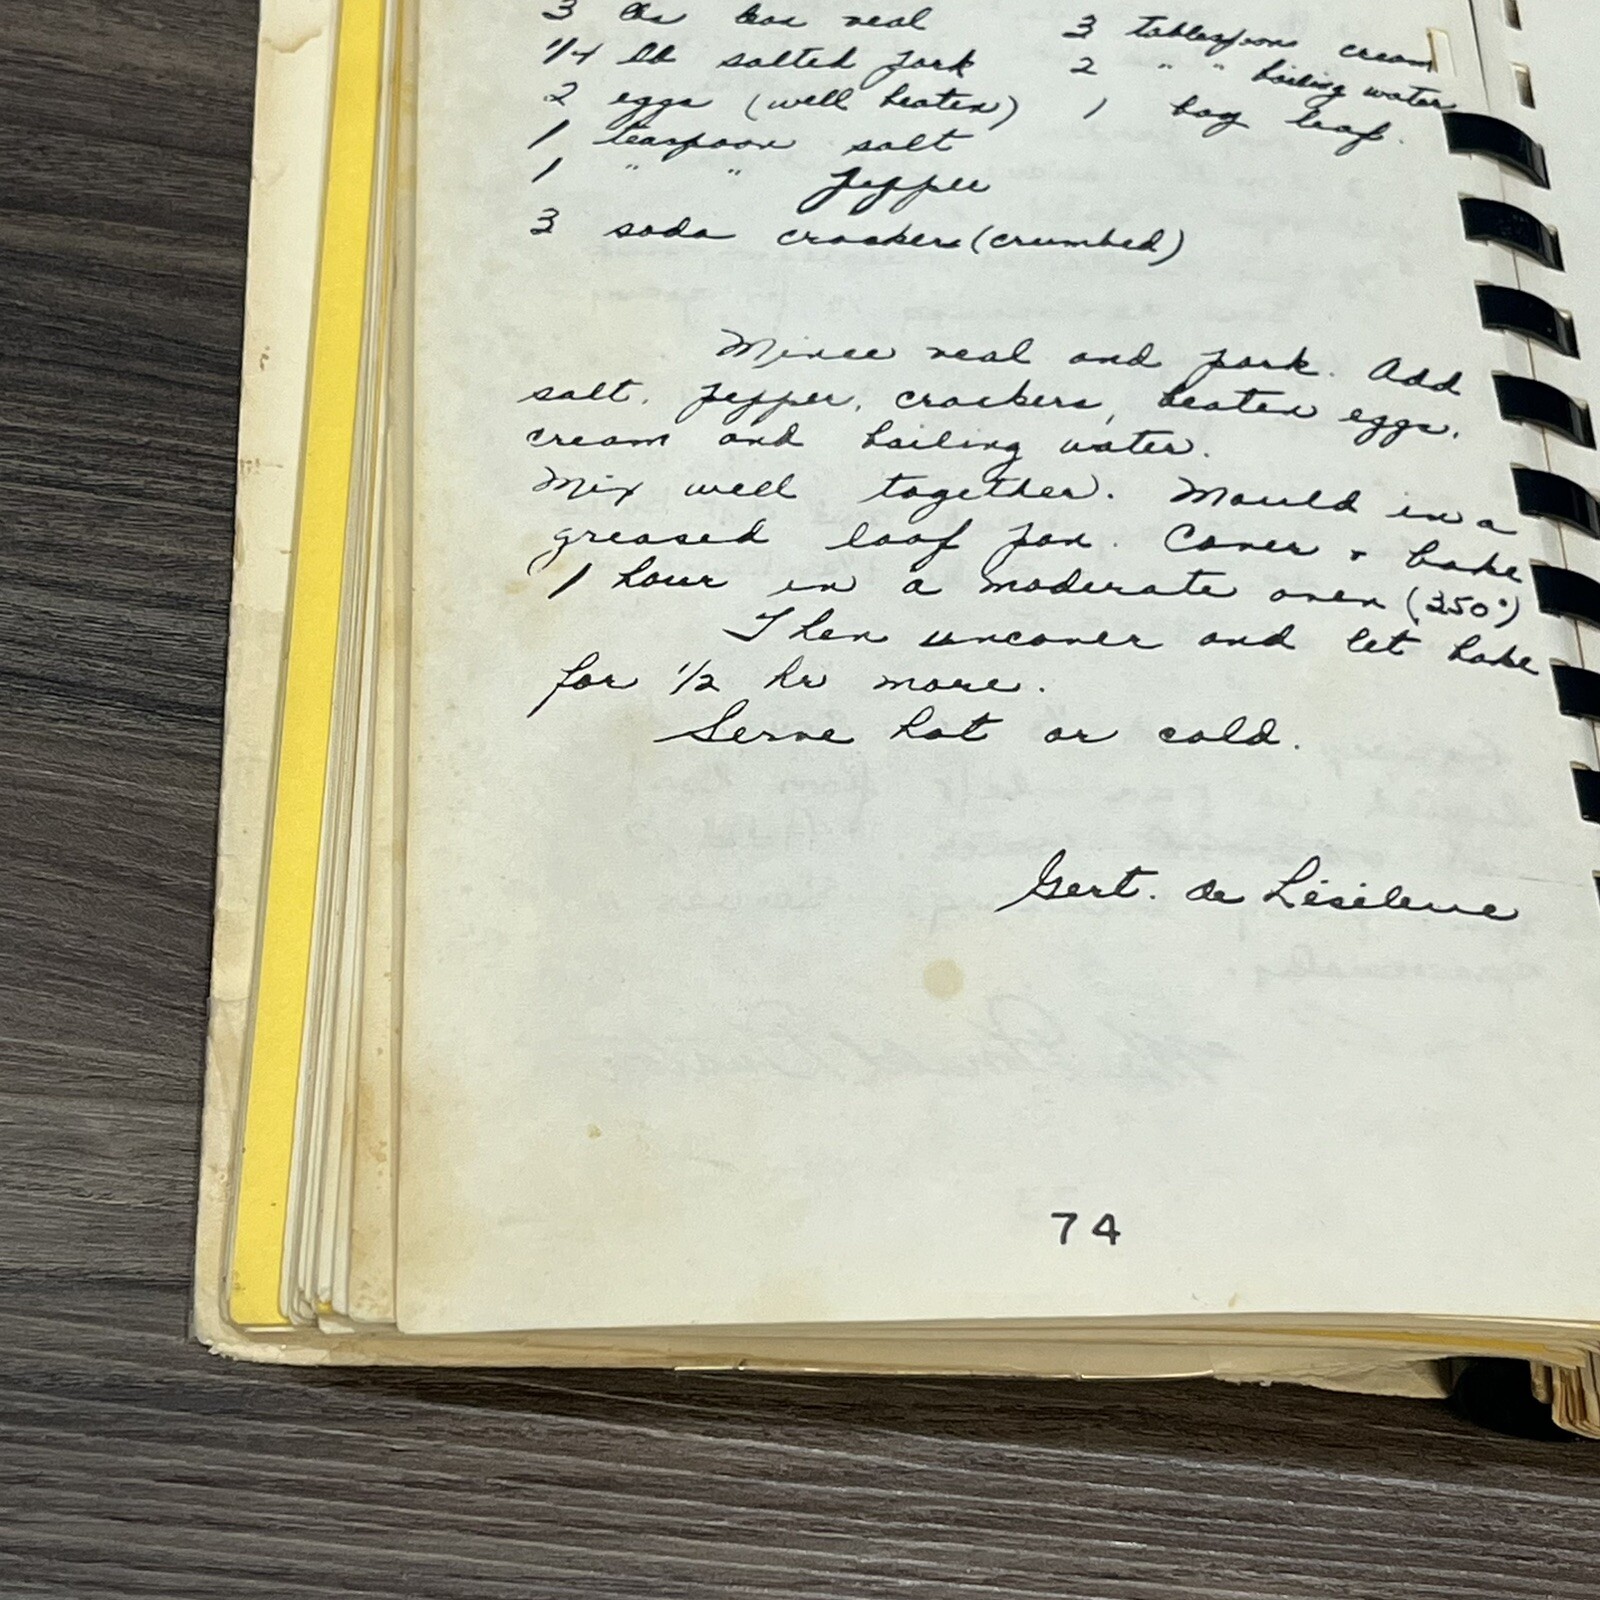 3 lbs lean veal 3 tablespoons cream
1/4 lb salted pork 2 " " boiling water
2 eggs (well beaten) 1 bay leaf.
1 teaspoon salt
1 " " pepper
3 soda crackers (crumbed)
Mince veal and pork. Add
salt, pepper, crackers, beaten eggs,
cream and boiling water.
Mix well together. Mould in a
greased loaf pan. Cover + bake
1 hour in a moderate oven (350°)
Then uncover and let bake
for 1/2 hr more.
Serve hot or cold.
Gert. de
74